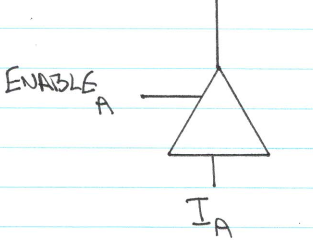 ENABLE_A
I_A